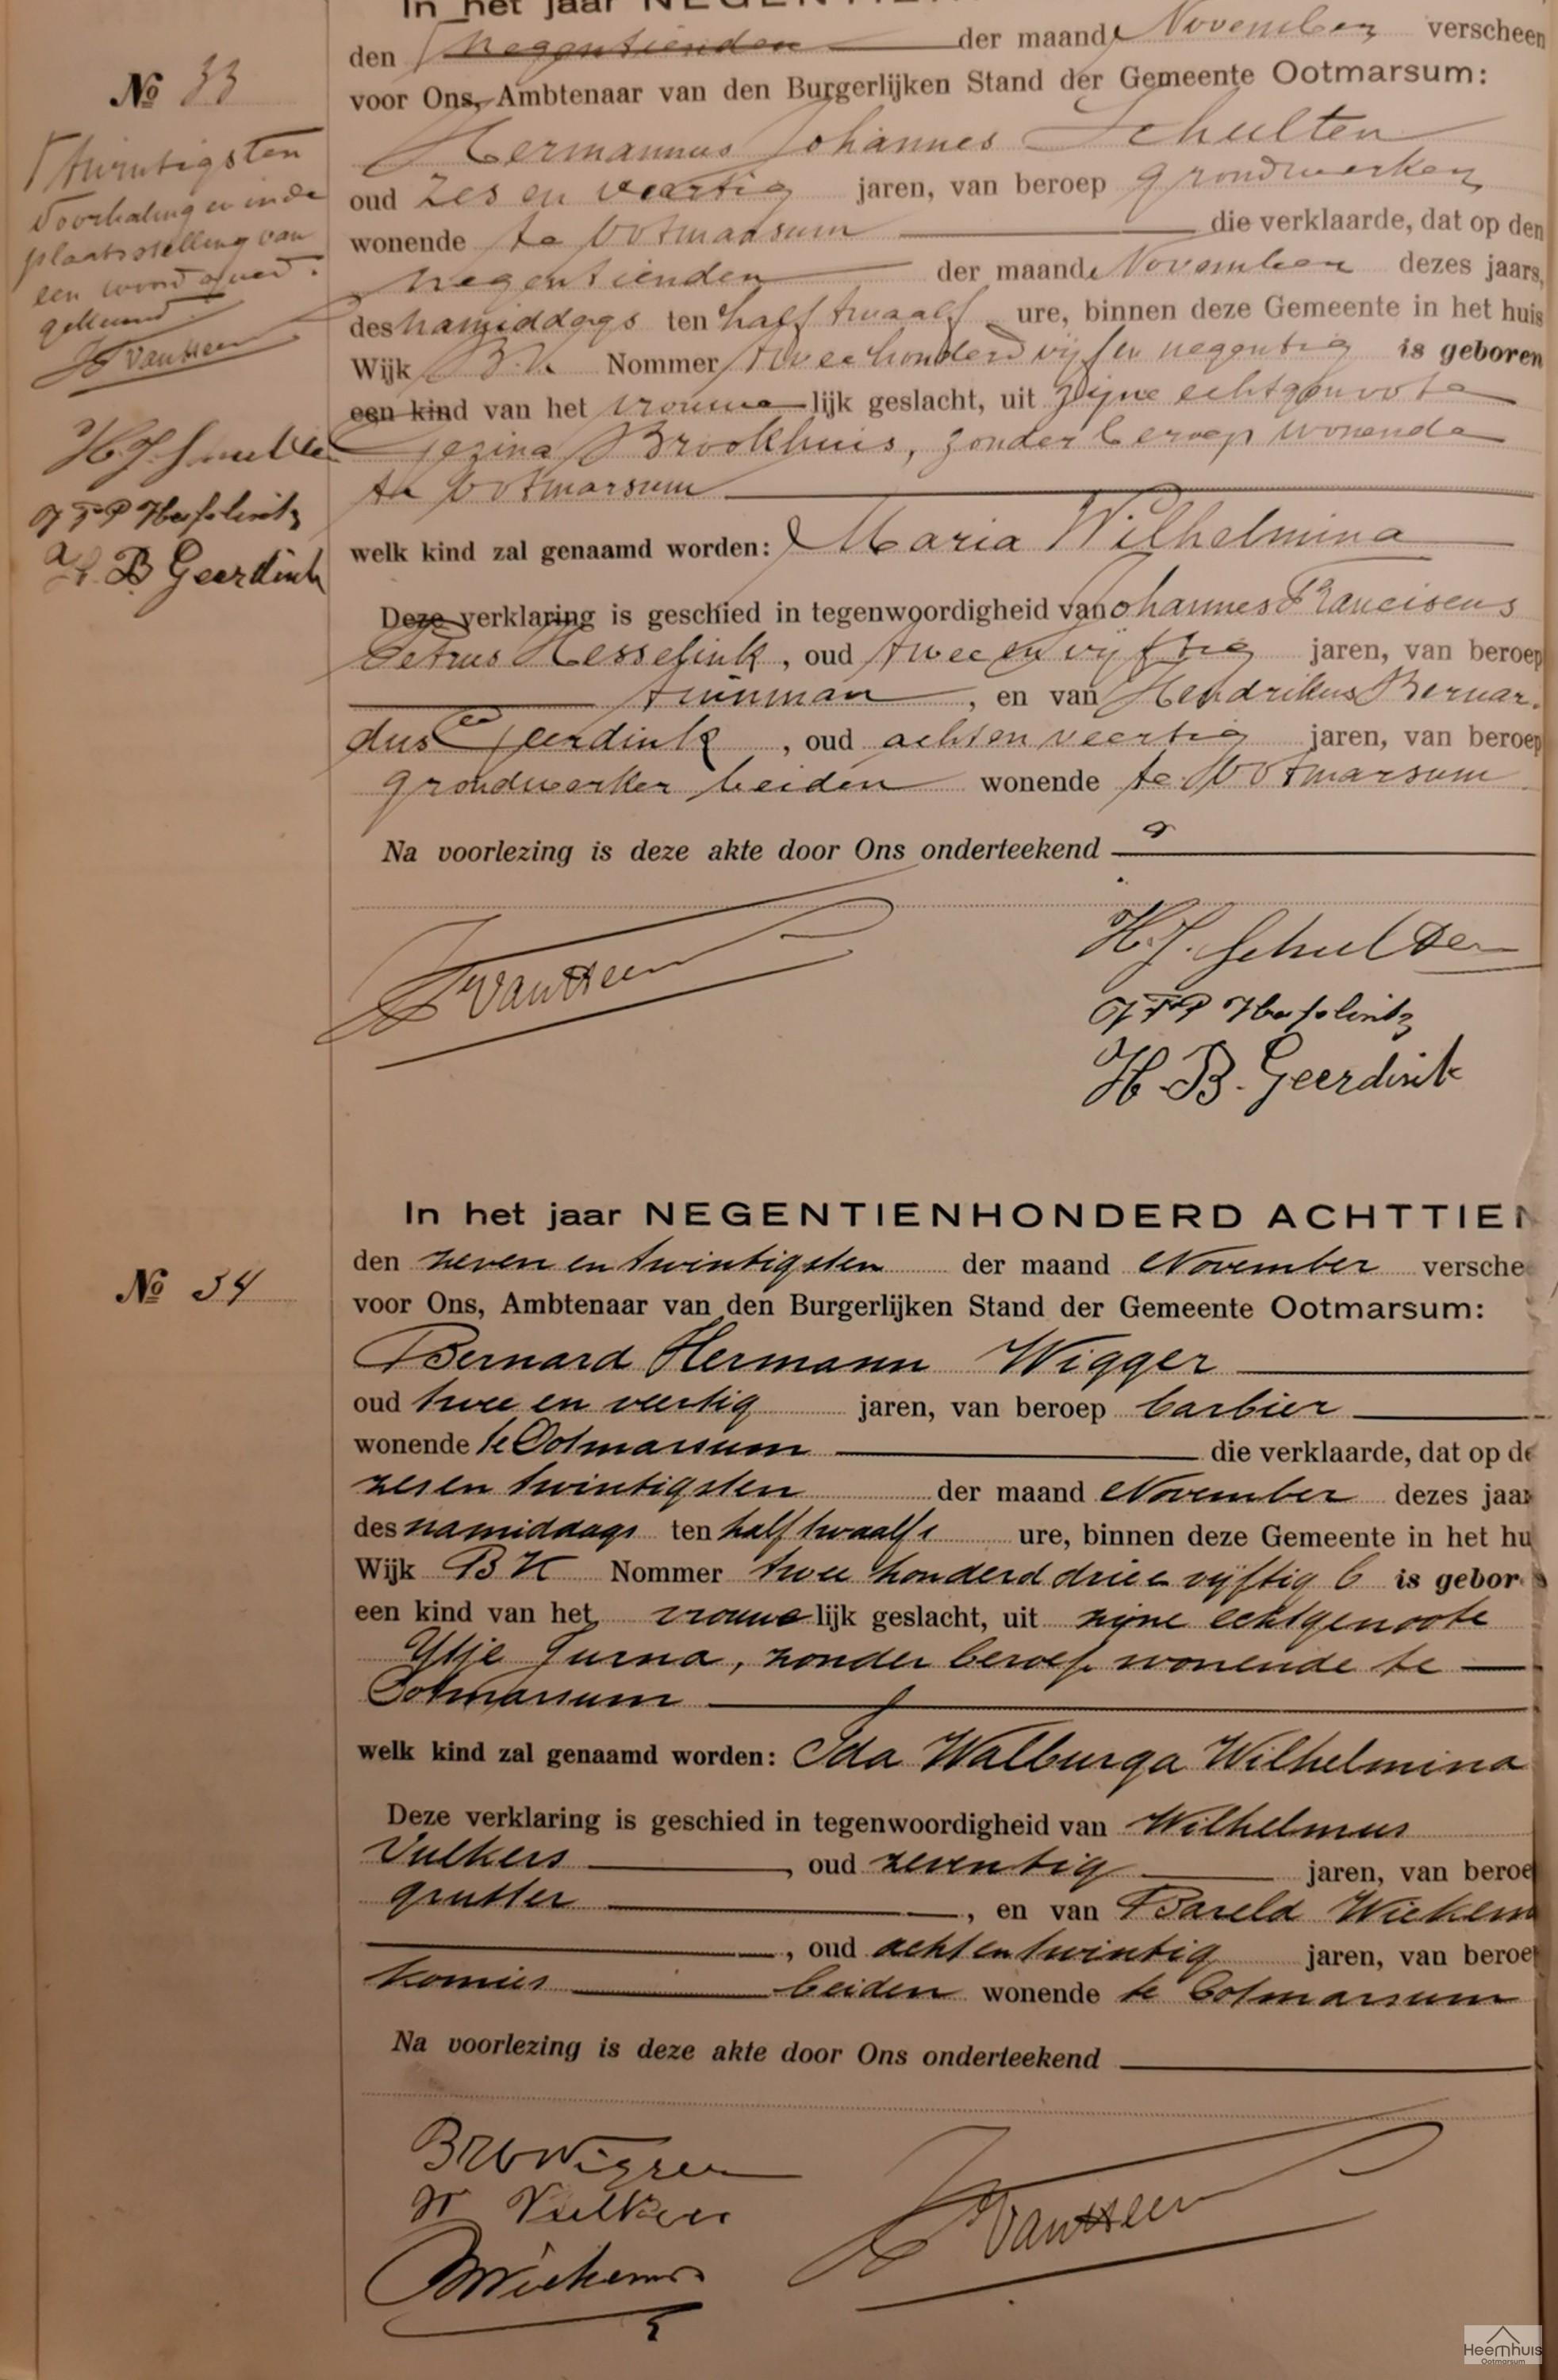 In het jaar NEGENTIEN
No 33
den negentienden der maand November verscheen
voor Ons, Ambtenaar van den Burgerlijken Stand der Gemeente Ootmarsum:
Twintigsten
Doorhaling en in de
plaatsstelling van
een woord goed
gekeurd.
Hermannus Johannes Schulten
oud zes en veertig jaren, van beroep grondwerker
wonende te Ootmarsum die verklaarde, dat op den
negentienden der maand November dezes jaars,
des namiddags ten half twaalf ure, binnen deze Gemeente in het huis
Wijk B.K. Nommer twee honderd vijf en negentig is geboren
een kind van het vrouwelijk geslacht, uit zijne echtgenoote
Gezina Brookhuis, zonder beroep wonende
te Ootmarsum
H B Geerdink
welk kind zal genaamd worden: Maria Wilhelmina
Deze verklaring is geschied in tegenwoordigheid van Johannes Franciscus
Petrus Hesselink, oud twee en vijftig jaren, van beroep
tuinman, en van Hendrikus Bernar
dus Geerdink, oud acht en veertig jaren, van beroep
grondwerker beiden wonende te Ootmarsum
Na voorlezing is deze akte door Ons onderteekend
H.J. Schulten
H. B. Geerdink
In het jaar NEGENTIENHONDERD ACHTTIEN
No 34
den zeven en twintigsten der maand November versche
voor Ons, Ambtenaar van den Burgerlijken Stand der Gemeente Ootmarsum:
Bernard Hermann Wigger
oud twee en veertig jaren, van beroep barbier
wonende te Ootmarsum die verklaarde, dat op de
zes en twintigsten der maand November dezes jaar
des namiddags ten half twaalf ure, binnen deze Gemeente in het hu
Wijk B K Nommer twee honderd drie e vijftig b is gebor
een kind van het vrouwelijk geslacht, uit zijne echtgenoote
Ytje Jurna, zonder beroep wonende te
Ootmarsum
welk kind zal genaamd worden: Ida Walburga Wilhelmina
Deze verklaring is geschied in tegenwoordigheid van Wilhelmus
Vulkers, oud zeventig jaren, van beroe
grutter, en van Bareld Wiekens
, oud acht en twintig jaren, van beroe
komies beiden wonende te Ootmarsum
Na voorlezing is deze akte door Ons onderteekend
BH Wigger
W Vulkers
B Wiekens
Heemhuis
Ootmarsum